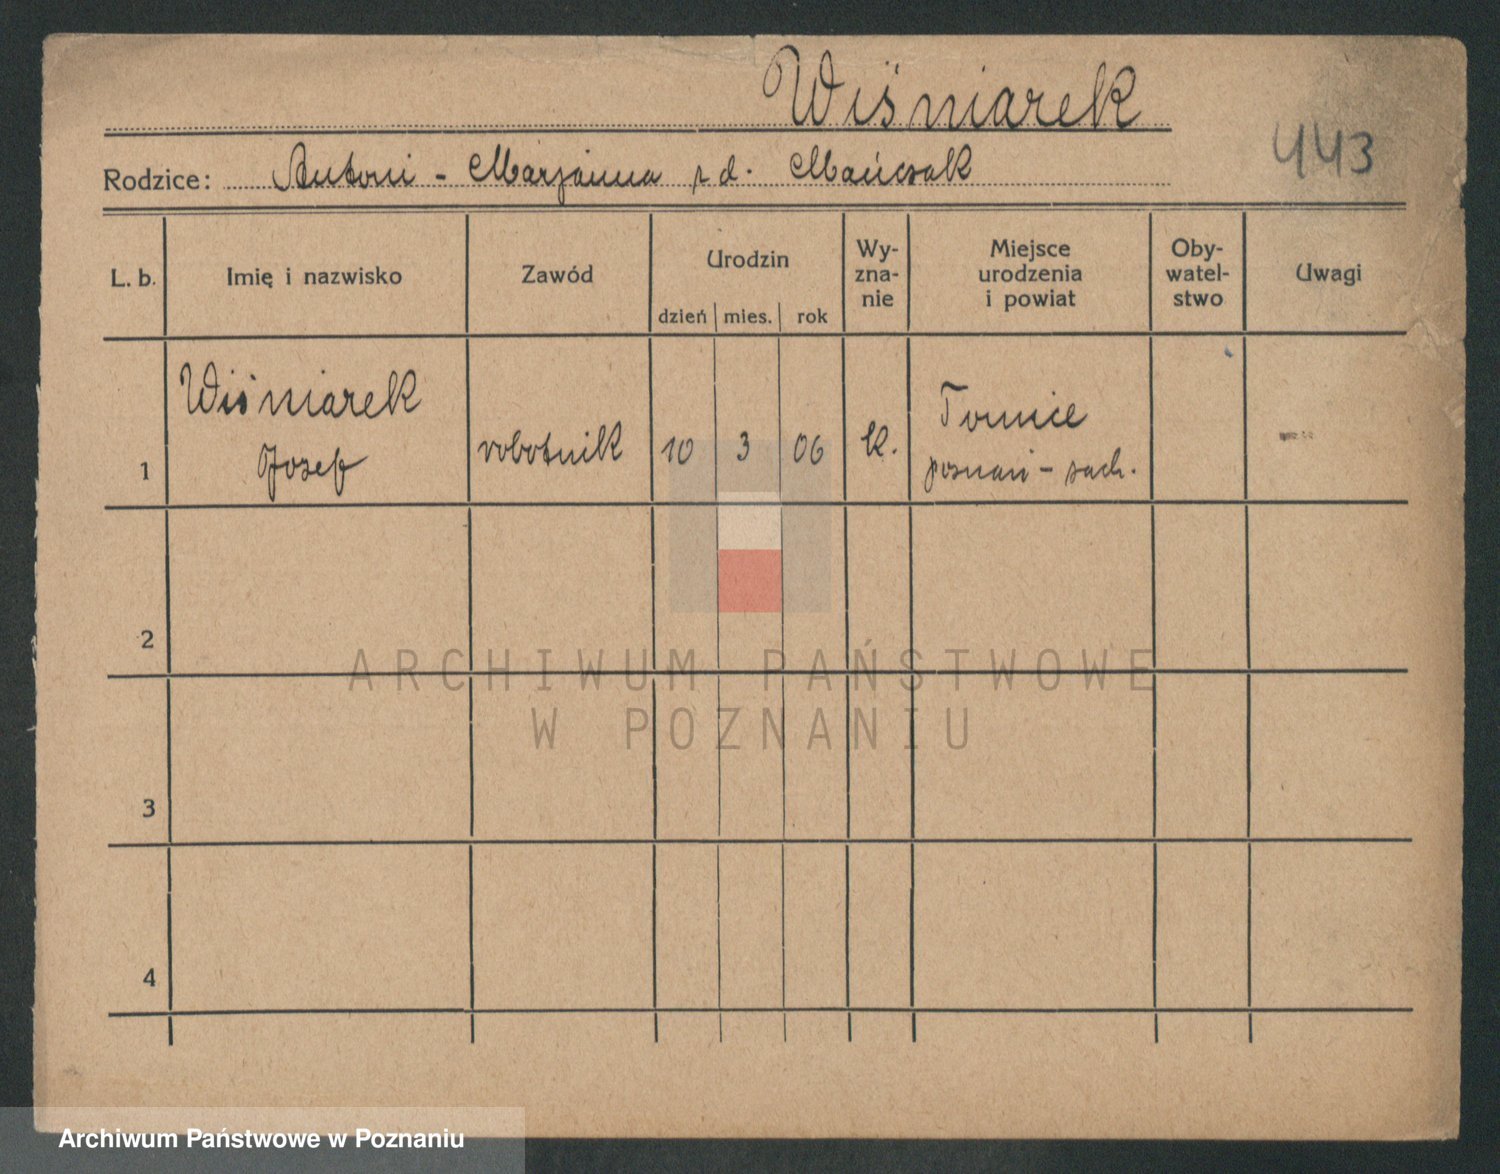 Wiśniarek
443
Rodzice: Antoni - Marjanna z d. Mańczak
L. b. Imię i nazwisko Zawód Urodzin dzień mies. rok Wy-zna-nie Miejsce urodzenia i powiat Oby-watel-stwo Uwagi
Wiśniarek
Józef
1 robotnik 10 3 06 k. Tomice
poznań - zach.
2
ARCHIWUM PAŃSTWOWE
W POZNANIU
3
4
Archiwum Państwowe w Poznaniu